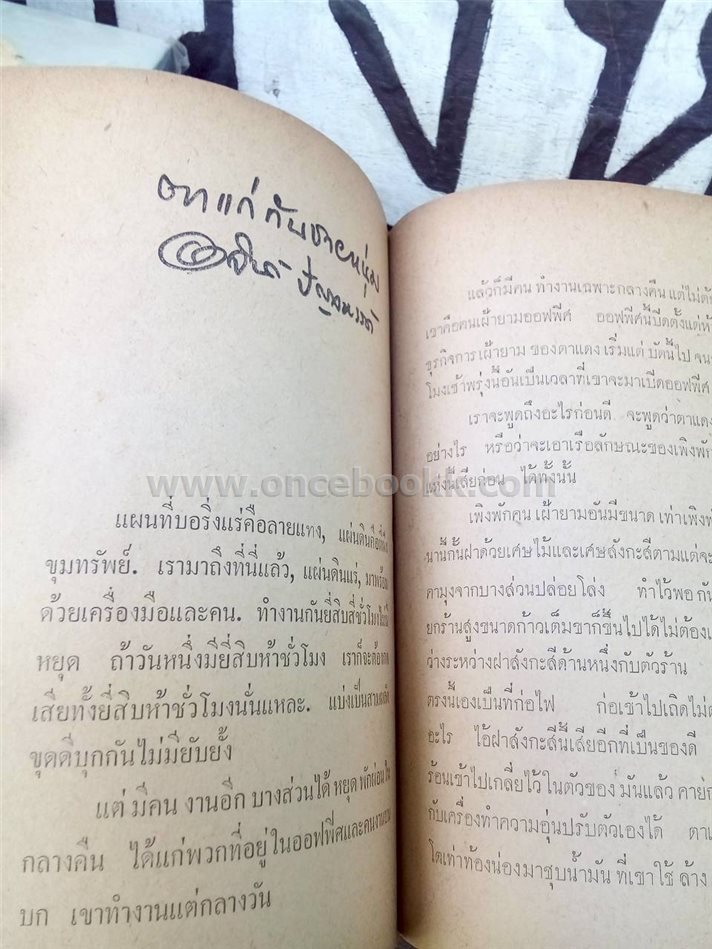 ตาแก่กับชายหนุ่ม
อาจินต์ ปัญจพรรค์
แผนที่บอริ่งแร่คือลายแทง, แผ่นดินคือ
ขุมทรัพย์. เรามาถึงที่นี่แล้ว, แผ่นดินแร่, มาพร้อม
ด้วยเครื่องมือและคน. ทำงานกันยี่สิบสี่ชั่วโมง
หยุด ถ้าวันหนึ่งมียี่สิบห้าชั่วโมง เราก็จะต้อง
เสียทั้งยี่สิบห้าชั่วโมงนั่นแหละ. แบ่งเป็นสาม
ขุดดีบุกกันไม่มียับยั้ง
แต่ มีคน งานอีก บางส่วนได้ หยุด พักผ่อน ใน
กลางคืน ได้แก่พวกที่อยู่ในออฟฟิศและคนงาน
บก เขาทำงานแต่กลางวัน
แล้วก็มีคน ทำงานเฉพาะกลางคืน แต่ไม่
เขาคือคนเฝ้ายามออฟฟิศ ออฟฟิศนี้ปิดตั้งแต่
ธุรกิจการ เฝ้ายาม ของตาแดง เริ่มแต่ บัดนี้ไป จน
โมงเช้าพรุ่งนี้อันเป็นเวลาที่เขาจะมาเปิดออฟฟิศ
เราจะพูดถึงอะไรก่อนดี จะพูดว่าตาแดง
อย่างไร หรือว่าจะเอาเรื่อลักษณะของเพิงพัก
เสียก่อน ได้ทั้งนั้น
www.oncebookk.com
เพิงพักคน เฝ้ายามอันมีขนาด เท่าเพิง
นานี้กั้นฝาด้วยเศษไม้และเศษสังกะสีตามแต่จะ
ตามุงจากบางส่วนปล่อยโล่ง ทำไว้พอ กัน
ยกร้านสูงขนาดก้าวเต็มขาก็ขึ้นไปได้ไม่ต้อง
ว่างระหว่างฝาสังกะสีด้านหนึ่งกับตัวร้าน
ตรงนี้เองเป็นที่ก่อไฟ ก่อเข้าไปเถิดไม่
อะไร ไอ้ฝาสังกะสีนี้เสียอีกที่เป็นของดี
ร้อนเข้าไปเกลี่ยไว้ในตัวของ มันแล้ว คาย
กับเครื่องทำความอุ่นปรับตัวเองได้
โตเท่าท้องน่องมาชุบน้ำมัน ที่เขาใช้ ล้าง